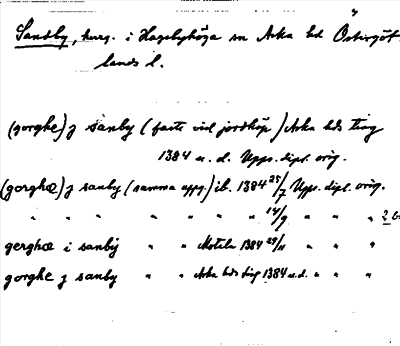 Sandby, herrg. i Hagebyhöga sn Aska hd Östergöt-
lands l.
(gorghe) j sanby (faste vid jordköp) Aska hds ting
1384 u. d. Upps. dipl. orig.
(gorghæ) j sanby (samma uppg.) ib. 1384 25/7 Upps. dipl. orig.
" " " " " " 14/9 " " " 2
gerghæ i sanbÿ " " Motala 1384 29/11 " " "
gorghe j sanby " " Aska hds ting 1384 u.d. " " "